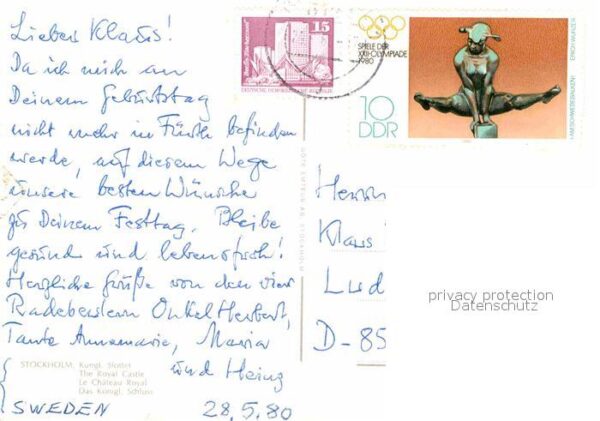 Lieber Klaus!
Da ich mich an
Deinem Geburtstag
nicht mehr in Fürth befinden
werde, auf diesem Wege
unsere besten Wünsche
zu Deinem Festtag. Bleibe
gesund und lebensfroh!
Herzliche Grüße von den vier
Radebeulern Onkel Herbert,
Tante Annemarie, Maria
und Heinz
STOCKHOLM, Kungl. Slottet
The Royal Castle
Le Château Royal
Das Königl. Schloss
SWEDEN 28.5.80
15
DEUTSCHE DEMOKRATISCHE REPUBLIK
SPIELE DER
XXII. OLYMPIADE
1980
10
DDR
AM SCHWEBEBALKEN
ERICH WUNSCH
Herrn
Klaus
Lud
D-85
privacy protection
Datenschutz